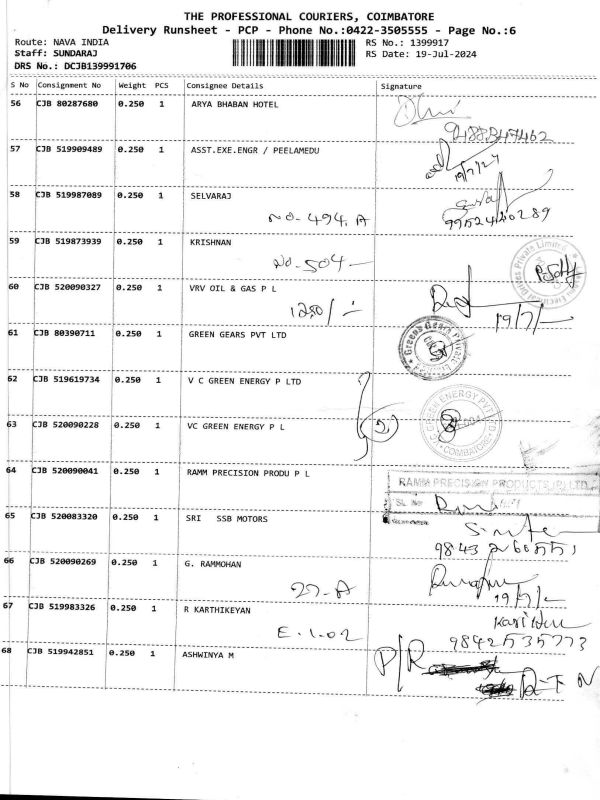 THE PROFESSIONAL COURIERS, COIMBATORE
Delivery Runsheet - PCP - Phone No.:0422-3505555 - Page No.:6
Route: NAVA INDIA RS No.: 1399917
Staff: SUNDARAJ RS Date: 19-Jul-2024
DRS No.: DCJB139991706
S No Consignment No Weight PCS Consignee Details Signature
56 CJB 80287680 0.250 1 ARYA BHABAN HOTEL
57 CJB 519909489 0.250 1 ASST.EXE.ENGR / PEELAMEDU
19/7/24
58 CJB 519987089 0.250 1 SELVARAJ
NO-494.A 9952440289
59 CJB 519873939 0.250 1 KRISHNAN
NO-504
60 CJB 520090327 0.250 1 VRV OIL & GAS P L
19/7/-
61 CJB 80390711 0.250 1 GREEN GEARS PVT LTD
62 CJB 519619734 0.250 1 V C GREEN ENERGY P LTD
63 CJB 520090228 0.250 1 VC GREEN ENERGY P L
GREEN ENERGY PVT LTD
COIMBATORE
64 CJB 520090041 0.250 1 RAMM PRECISION PRODU P L
RAMM PRECISION PRODUCTS (P) LTD
SL No
65 CJB 520083320 0.250 1 SRI SSB MOTORS
66 CJB 520090269 0.250 1 G. RAMMOHAN
27-A 19/7/-
67 CJB 519983326 0.250 1 R KARTHIKEYAN
E.1.02 9842535773
68 CJB 519942851 0.250 1 ASHWINYA M
P/R